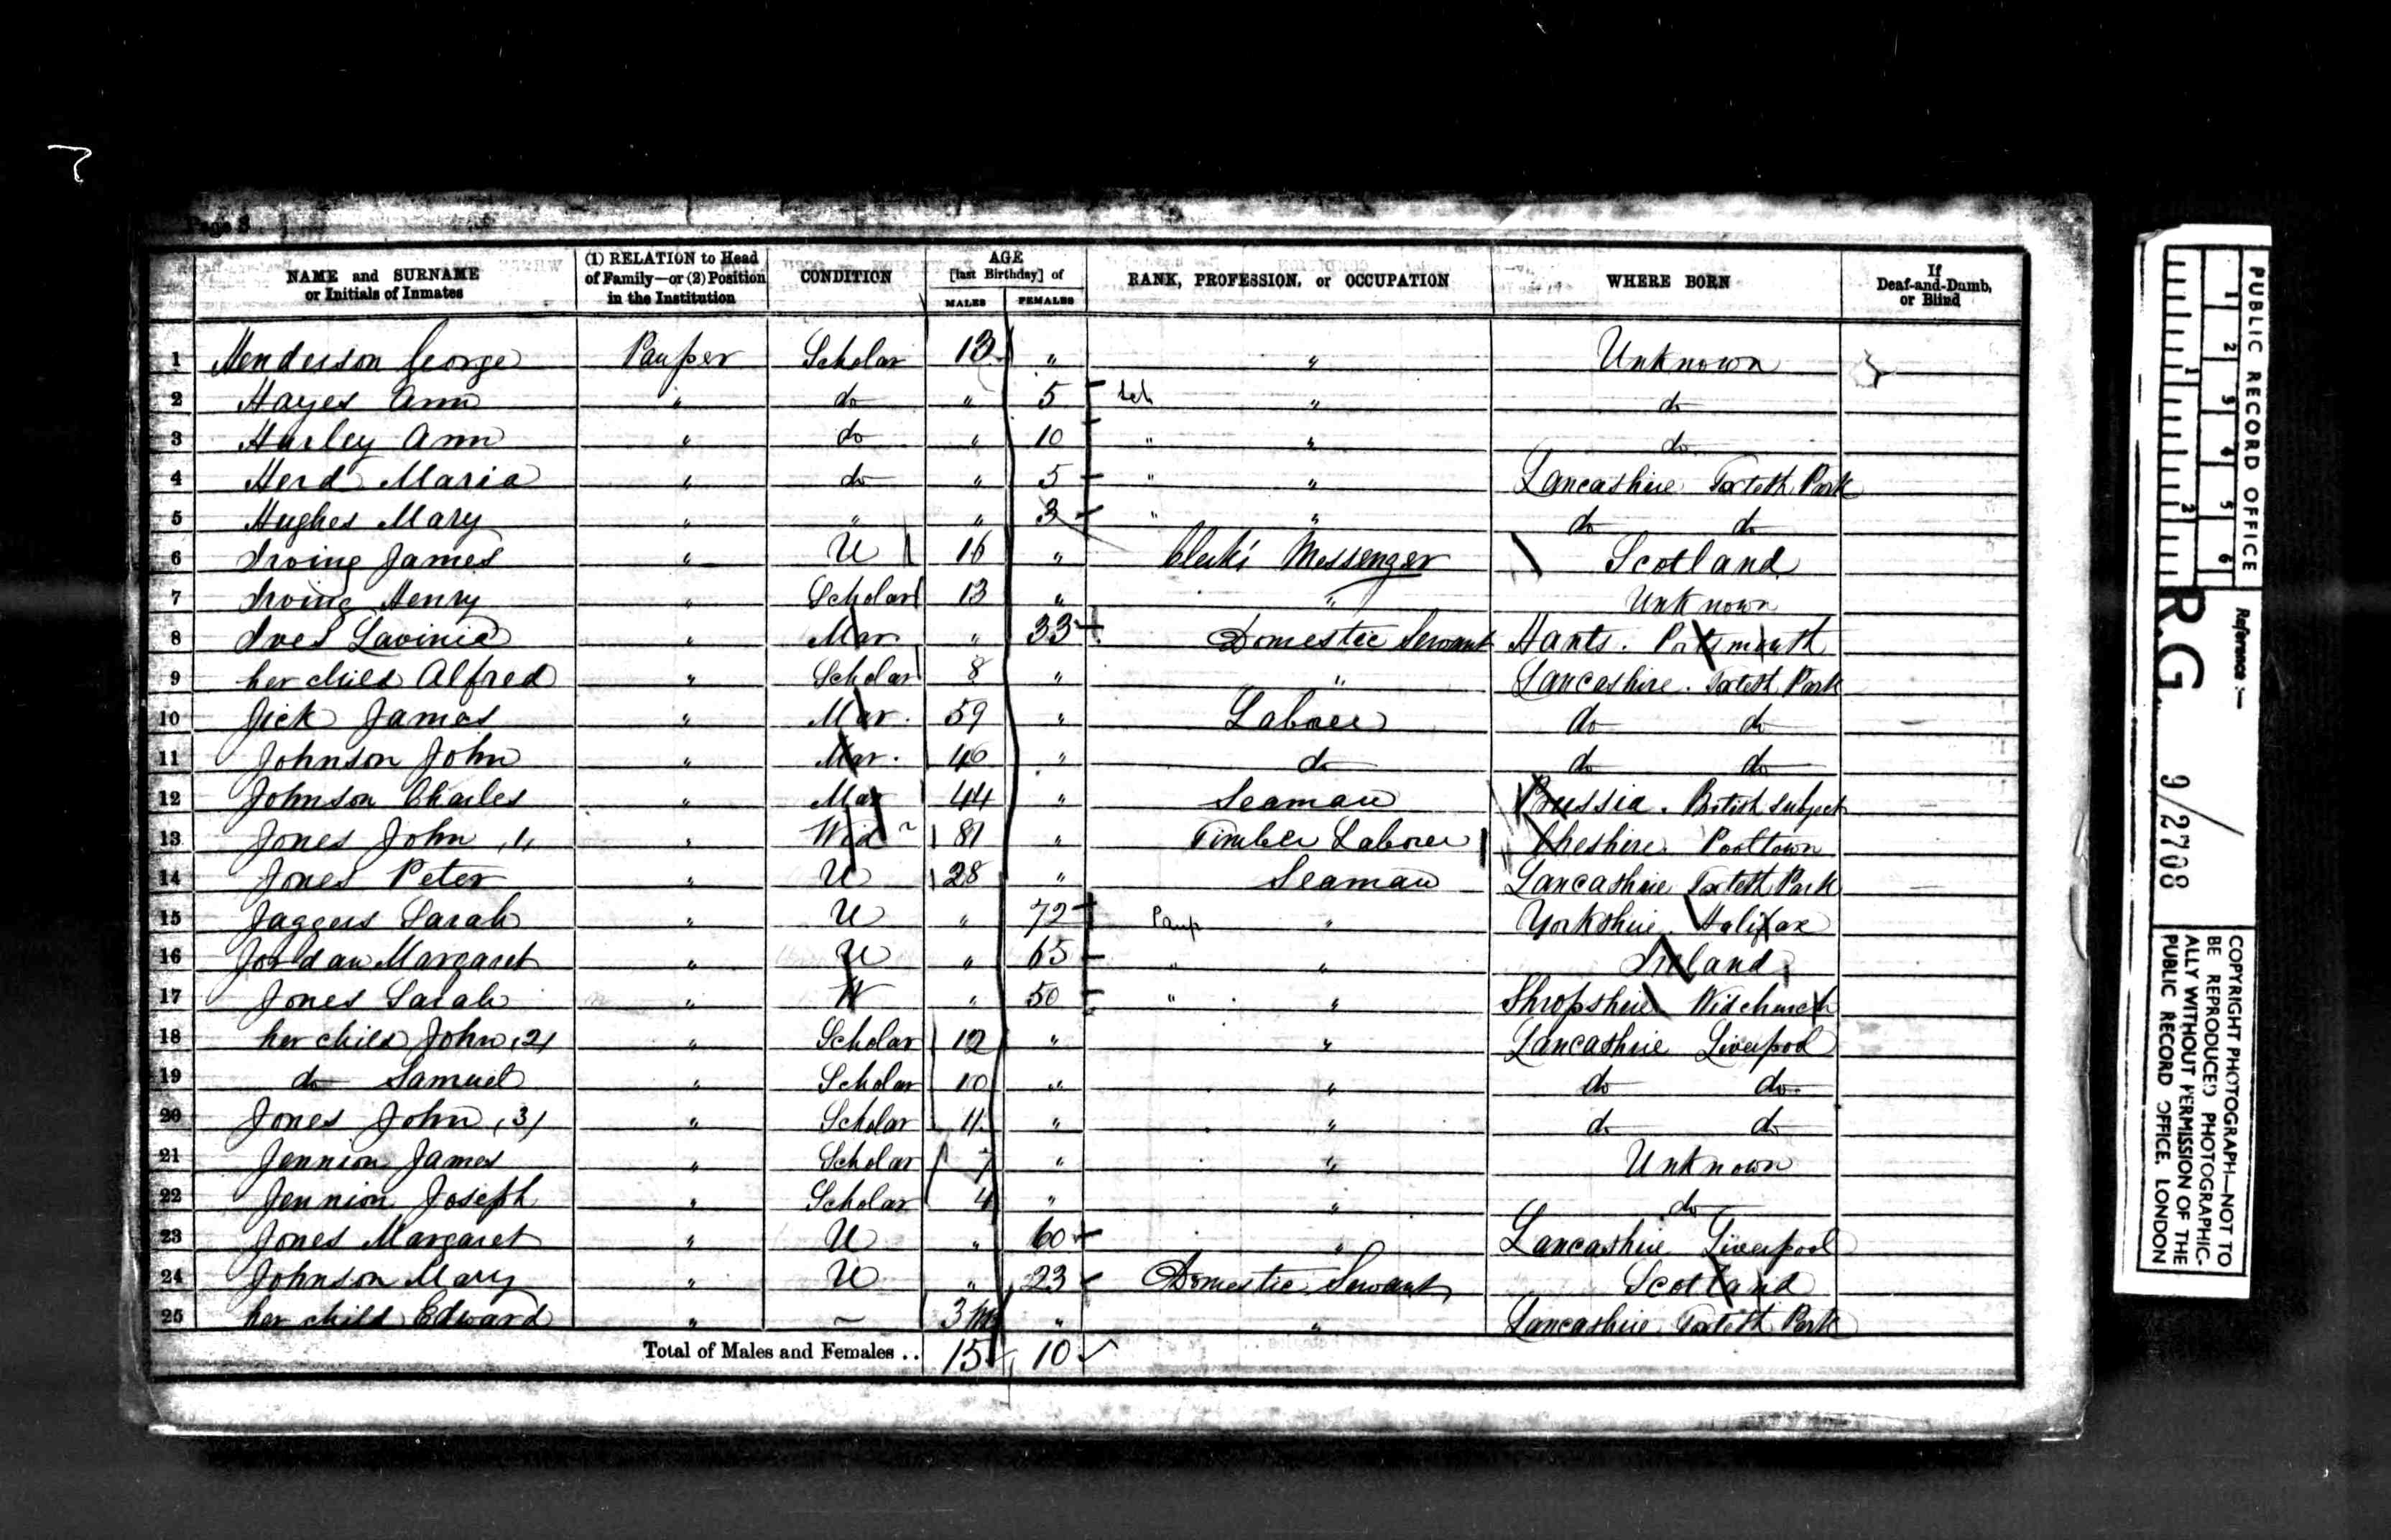 Page 8
NAME and SURNAME or Initials of Inmates (1) RELATION to Head of Family—or (2) Position in the Institution CONDITION AGE [last Birthday] of MALES FEMALES RANK, PROFESSION, or OCCUPATION WHERE BORN If Deaf-and-Dumb, or Blind
1 Henderson George Pauper Scholar 13 " " Unknown
2 Hayes Ann " do " 5 Sch " do
3 Hurley Ann " do " 10 " " do
4 Herd Maria " do " 5 " " Lancashire Toxteth Park
5 Hughes Mary " " " 3 " " do do
6 Irving James " U 16 " Clerk's Messenger Scotland
7 Irving Henry " Scholar 13 " " Unknown
8 Ives Lavinia " Mar. " 33 Domestic Servant Hants. Portsmouth
9 her child Alfred " Scholar 8 " " Lancashire. Toxteth Park
10 Jick James " Mar. 59 " Laborer do do
11 Johnson John " Mar. 40 " do do do
12 Johnson Charles " Mar 44 " Seaman Prussia. British Subject
13 Jones John (1) " Wid 81 " Timber Laborer Cheshire. Pooltown
14 Jones Peter " U 28 " Seaman Lancashire Toxteth Park
15 Jaggers Sarah " U " 72 Paup " Yorkshire. Halifax
16 Jordan Margaret " U " 65 " " Ireland
17 Jones Sarah " W " 50 " " Shropshire Witchurch
18 her child John (2) " Scholar 12 " " Lancashire Liverpool
19 do Samuel " Scholar 10 " " do do
20 Jones John (3) " Scholar 11 " " do do
21 Jennion James " Scholar 7 " " Unknown
22 Jennion Joseph " Scholar 4 " " do
23 Jones Margaret " U " 60 " Lancashire Liverpool
24 Johnson Mary " U " 23 Domestic Servant Scotland
25 her child Edward " – 3 m " " Lancashire Toxteth Park
Total of Males and Females .. 15 10
PUBLIC RECORD OFFICE
1 2 3 4 5 6
1 2
Reference :—
R.G. 9/2708
COPYRIGHT PHOTOGRAPH—NOT TO
BE REPRODUCED PHOTOGRAPHIC-
ALLY WITHOUT PERMISSION OF THE
PUBLIC RECORD OFFICE, LONDON